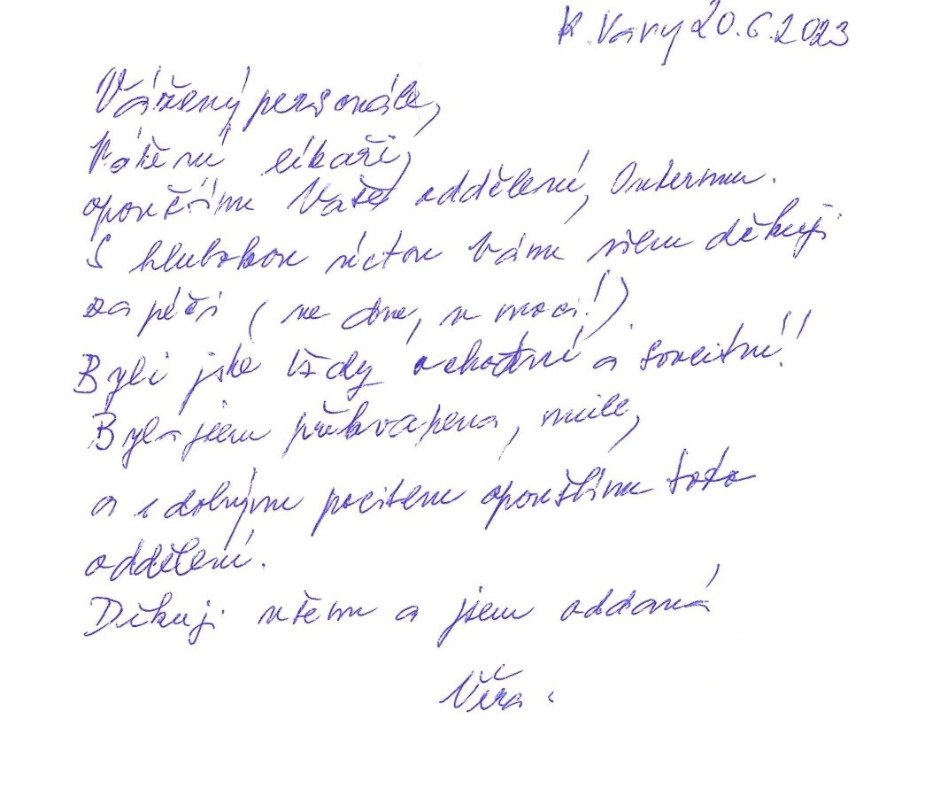 K. Vary 20.6.2023
Vážený personále,
Vážení lékaři,
opouštím Vaše oddělení, Internu.
S hlubokou úctou Vám všem děkuji
za péči (ve dne, v noci!)
Byli jste vždy ochotní a soucitní!
Byla jsem překvapena, mile,
a s dobrým pocitem opouštím toto
oddělení.
Děkuji všem a jsem oddaná
Věra